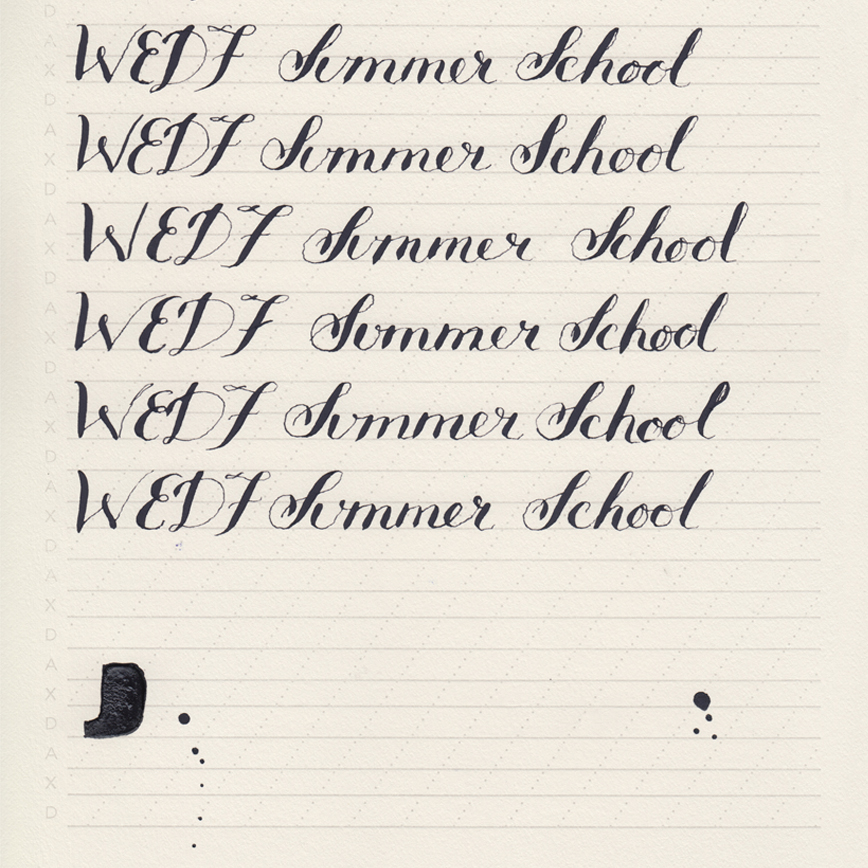 D
A
WEDF Summer School
X
D
A
WEDF Summer School
X
D
A
WEDF Summer School
X
D
A
WEDF Summer School
X
D
A
WEDF Summer School
X
D
A
WEDF Summer School
X
D
A
X
D
A
X
D
A
X
D